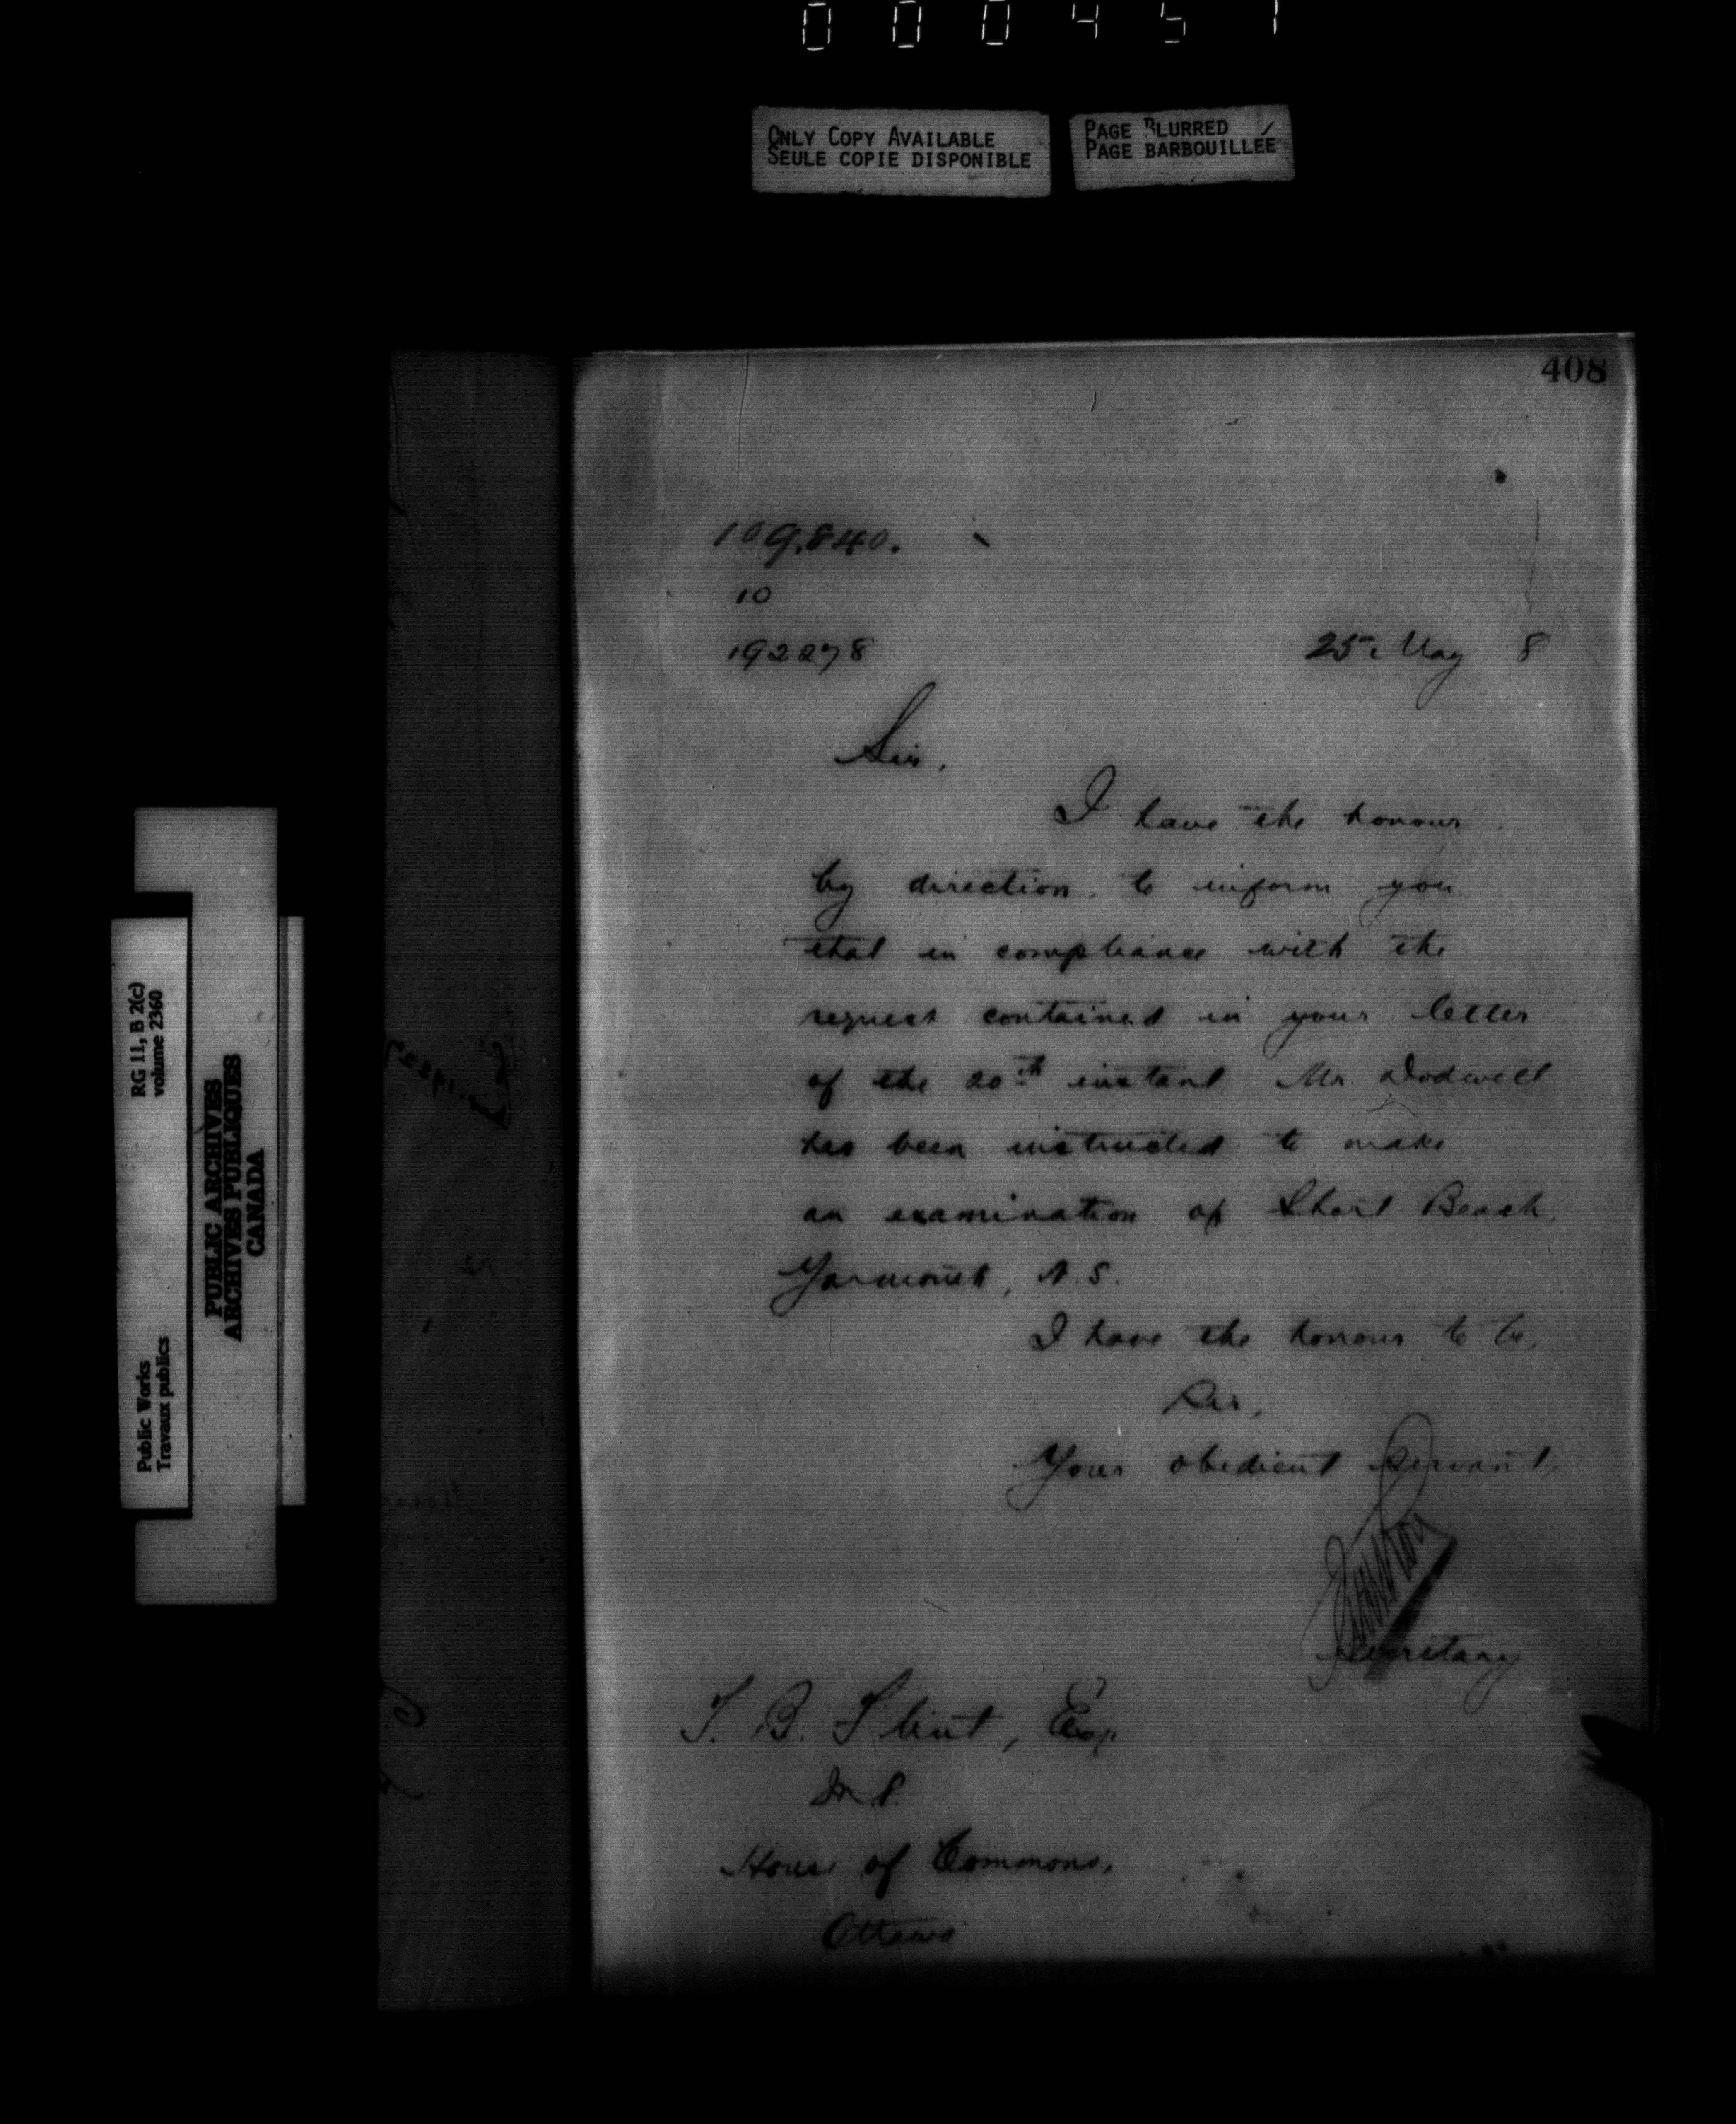 000451
ONLY COPY AVAILABLE
SEULE COPIE DISPONIBLE
PAGE BLURRED
PAGE BARBOUILLÉE
408
109.840.
10
192278
25 May 8
Sir,
I have the honour
by direction, to inform you
that in compliance with the
request contained in your letter
of the 20th instant Mr. Dodwell
has been instructed to make
an examination of Short Beach,
Yarmouth, N.S.
I have the honour to be,
Sir,
Your obedient Servant,
Secretary
T. B. Flint, Esq.
M.P.
House of Commons.
Ottawa
RG 11, B 2(c)
volume 2360
Public Works
Travaux publics
PUBLIC ARCHIVES
ARCHIVES PUBLIQUES
CANADA